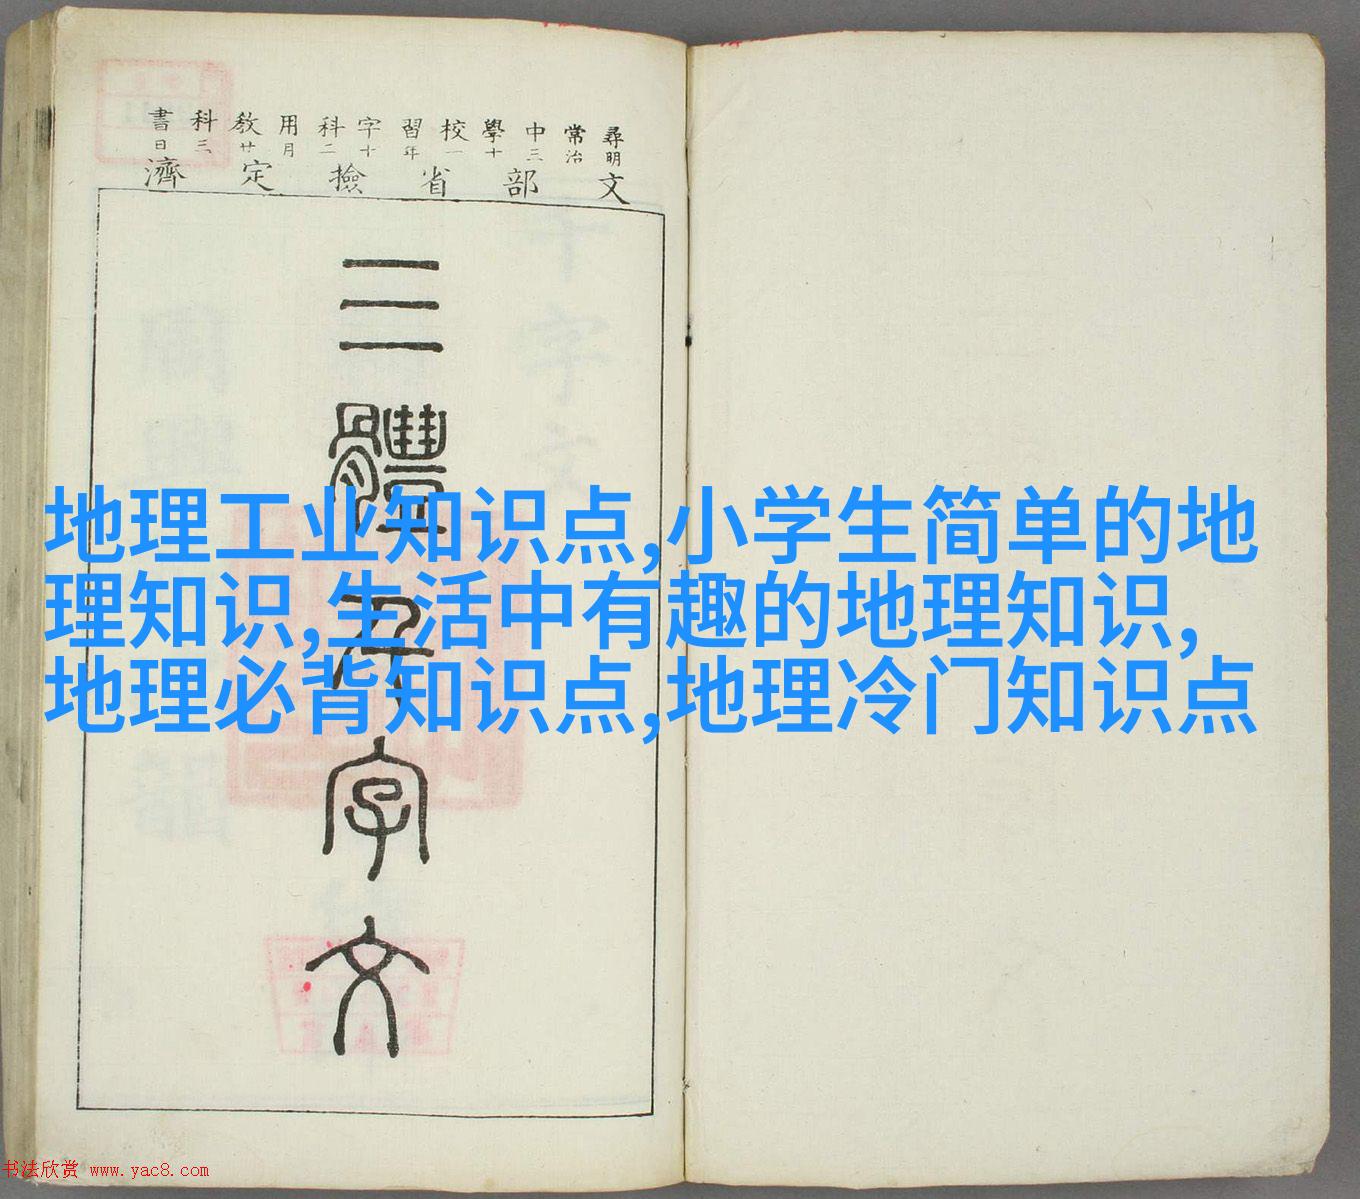 尋常中學校習字科用教科書
明治三十一年十二月廿三日
文部省檢定濟
三體千字文
地理工业知识点,小学生简单的地
理知识,生活中有趣的地理知识,
地理必背知识点,地理冷门知识点
书法欣赏 www.yac8.com